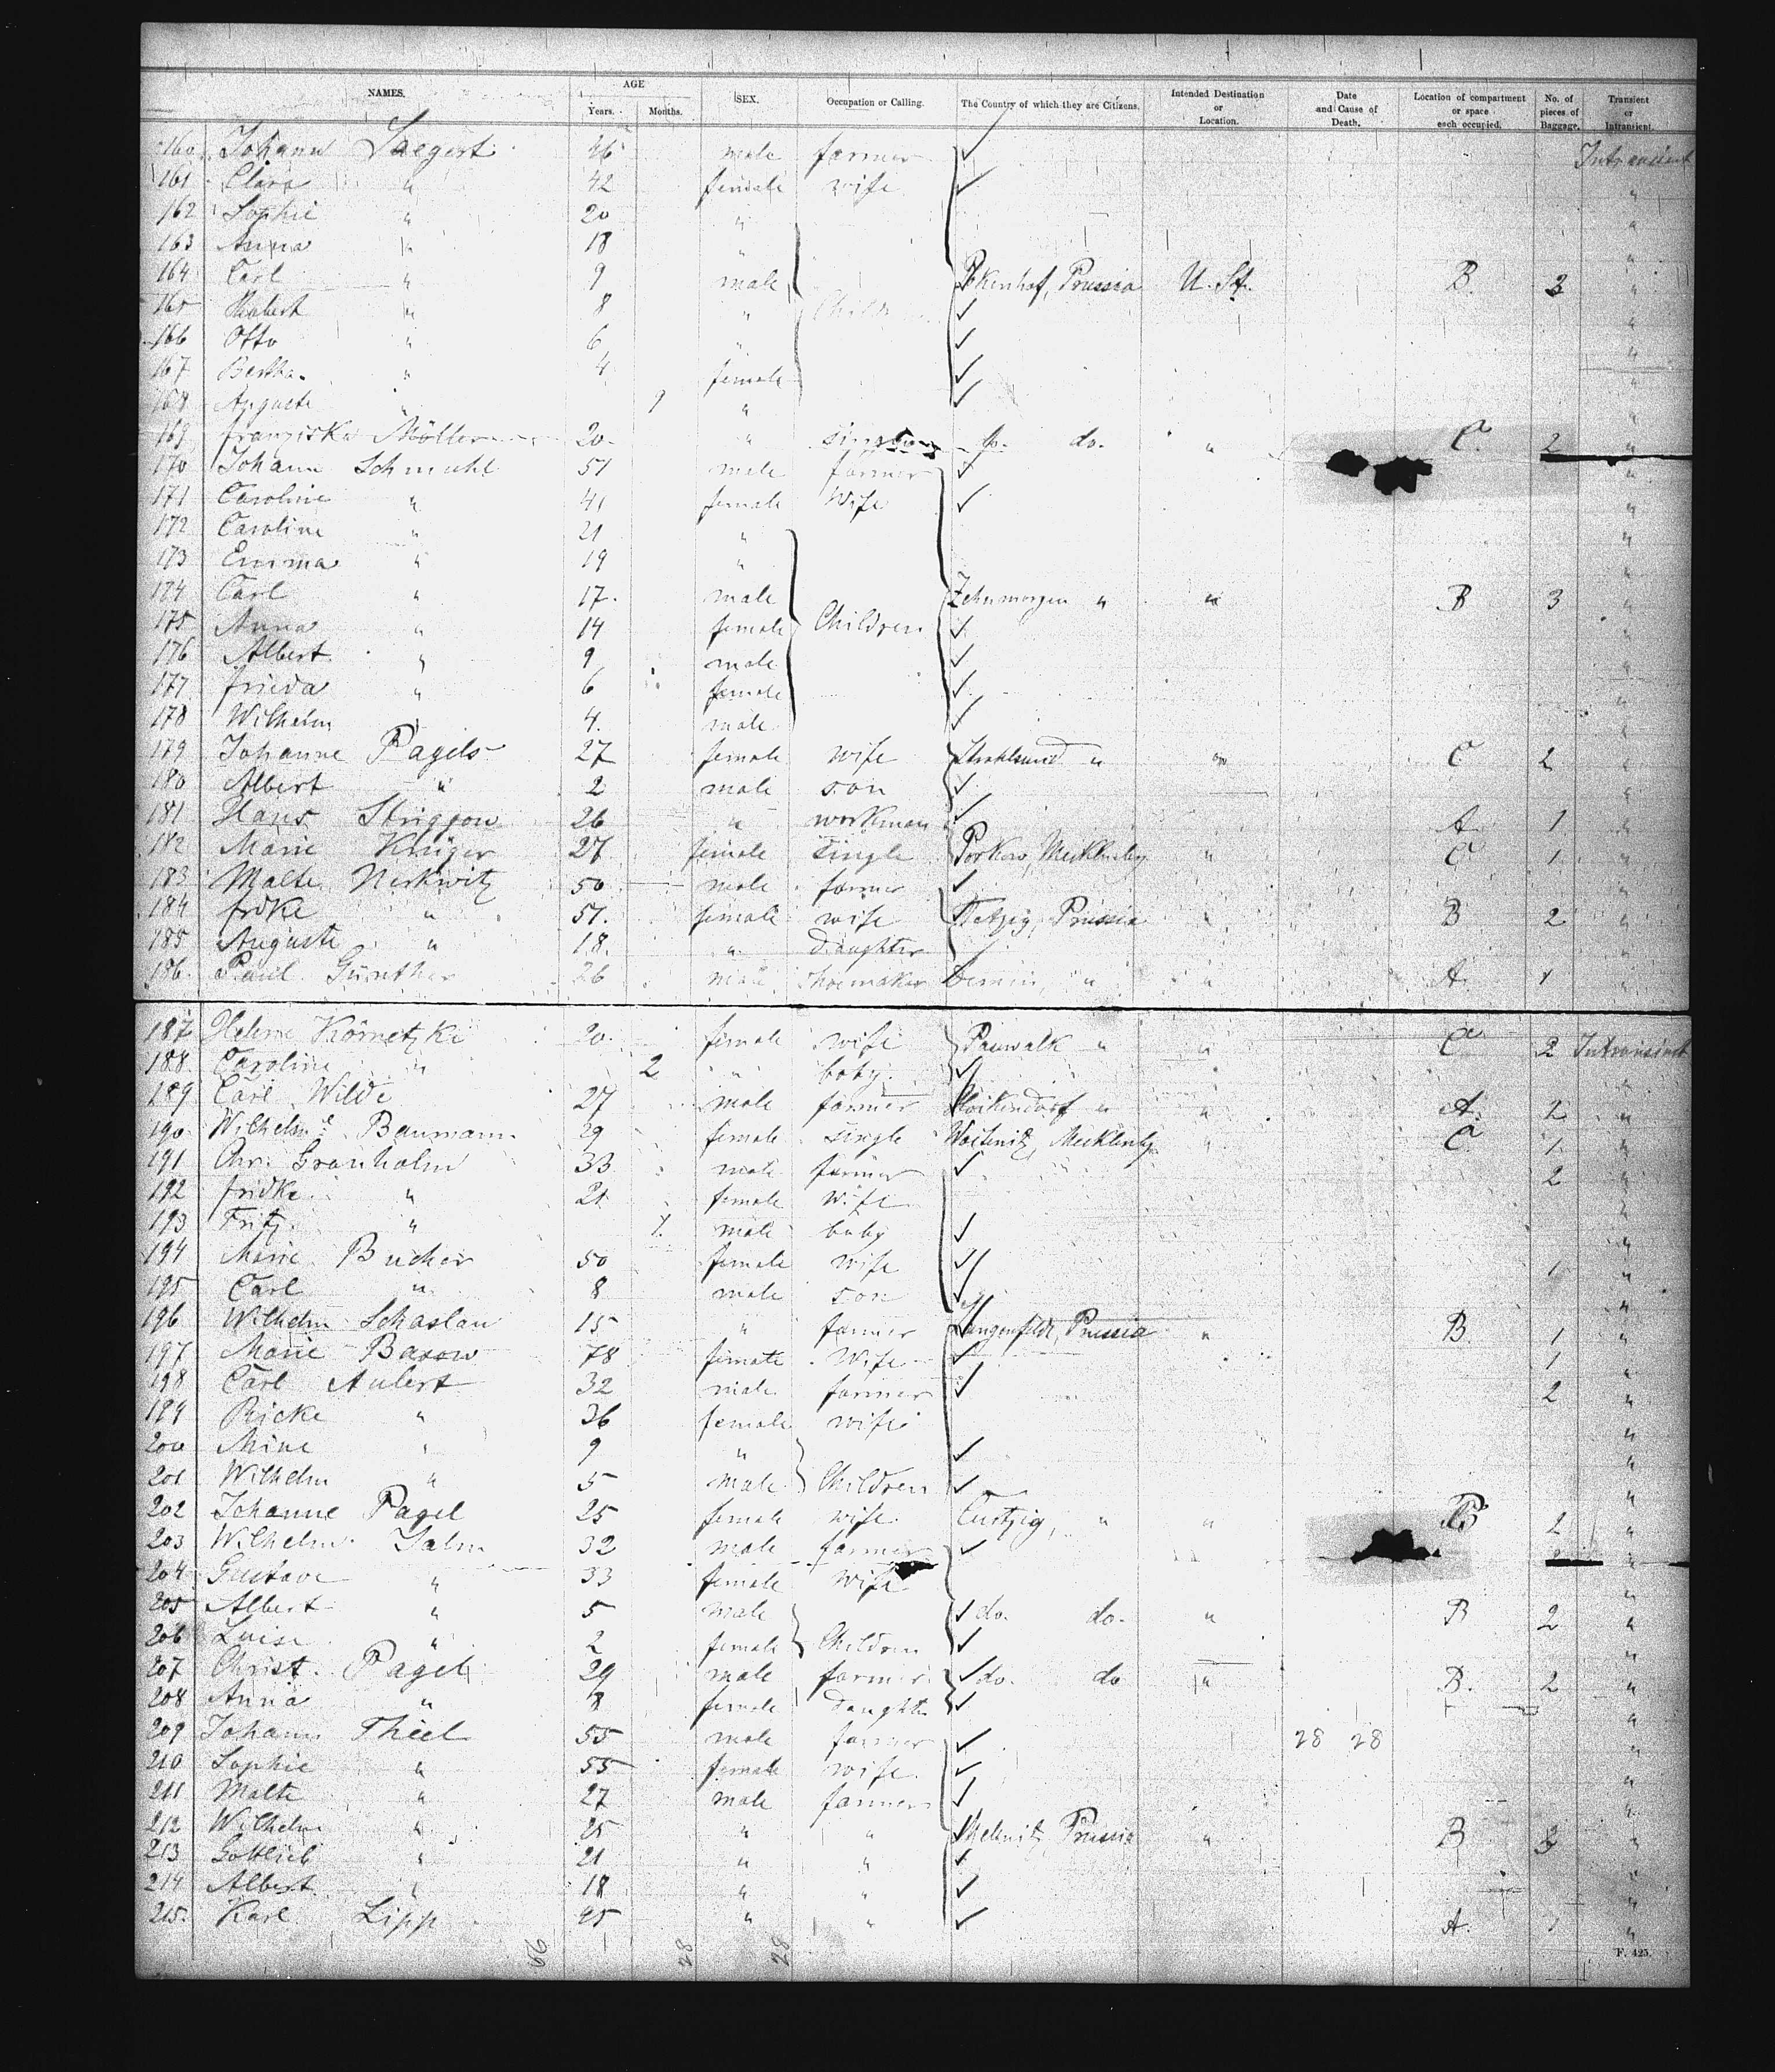 NAMES. AGE Years. Months. SEX. Occupation or Calling. The Country of which they are Citizens. Intended Destination or Location. Date and Cause of Death. Location of compartment or space each occupied. No. of pieces of Baggage. Transient or Intransient.
160 Johann Saegert 46 male farmer Intransient
161 Clara " 42 female wife "
162 Sophie " 20 " "
163 Anna " 18 " "
164 Carl " 9 male Prussia U. St. B. 3 "
165 Robert " 8 " Childr "
166 Otto " 6 " "
167 Bertha " 4 female "
168 Auguste " 9 " "
169 franziska Möller 20 " do. " C. 2 "
170 Johann Schmuhl 51 male farmer "
171 Caroline " 41 female Wife "
172 Caroline " 21 " "
173 Emma " 19 " "
174 Carl " 17 male Zehnmorgen " " B 3 "
175 Anna " 14 female Children "
176 Albert " 9 male "
177 frieda " 6 female "
178 Wilhelm " 4 male "
179 Johanne Pagels 27 female wife Stralsund " " C 2 "
180 Albert " 2 male son "
181 Hans Striggow 26 " workman A. 1 "
182 Marie Krüger 27 female single " C 1. "
183 Malte 50 male farmer "
184 frdke " 51. female wife Prussia " B 2 "
185 Auguste " 18. " daughter "
186. Paul Günther 26 male shoemaker Demin, " " A. 1 "
187 Helene 20. female wife " " C 2 Intransient
188. Caroline " 2 " baby "
189 Carl Wilde 27 male farmer " " A. 2 "
190. Wilhelme Baumann 29 female single " C 1. "
191 Chr. Granholm 33 male farmer 2 "
192 fridke " 21 female wife "
193 Fritz " 1. male baby "
194 Marie Bucher 50 female wife 1 "
195 Carl " 8 male son "
196 Wilhelm Schaslau 15 " farmer Langenfelde, Prussia " B 1 "
197 Marie Basow 78 female Wife 1 "
198 Carl Aulert 32 male farmer 2 "
199 Ricke " 36 female wife "
200 Mine " 9 " "
201 Wilhelm " 5 male Children "
202 Johanne Pagel 25 female wife " " B 2 "
203 Wilhelm 32 male farmer "
204 Gustave " 33 female wife "
205 Albert " 5 male do. do. " B 2 "
206 Luise " 2 female Children "
207 Christ. Pagel 29 male farmer do. do " B. 2 "
208 Anna " 8 female daughter "
209 Johann Theel 55 male farmer 28 28 "
210 Sophie " 55 female wife "
211 Malte " 27 male farmer "
212 Wilhelm " 25 " " Prussia " B 3 "
213 Gottlieb " 21 " " "
214 Albert " 18 " " "
215. Karl Lipp 45 " " A. 1 "
66 28 28
F. 425.